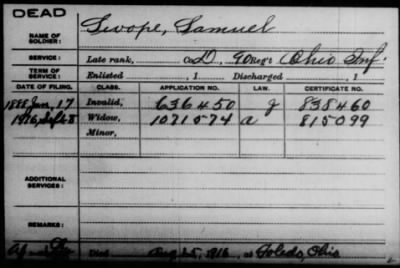 DEAD
NAME OF SOLDIER: Swope, Samuel
SERVICE: Late rank, Co. D, 90 Reg't Ohio Inf.
TERM OF SERVICE: Enlisted , 1 Discharged , 1
DATE OF FILING. CLASS. APPLICATION NO. LAW. CERTIFICATE NO.
1888 Jan, 17 Invalid, 636450 g 838460
1916, Widow, 1071574 a 815099
Minor,
ADDITIONAL SERVICES:
REMARKS:
Died Aug 25, 1916, at Toledo, Ohio